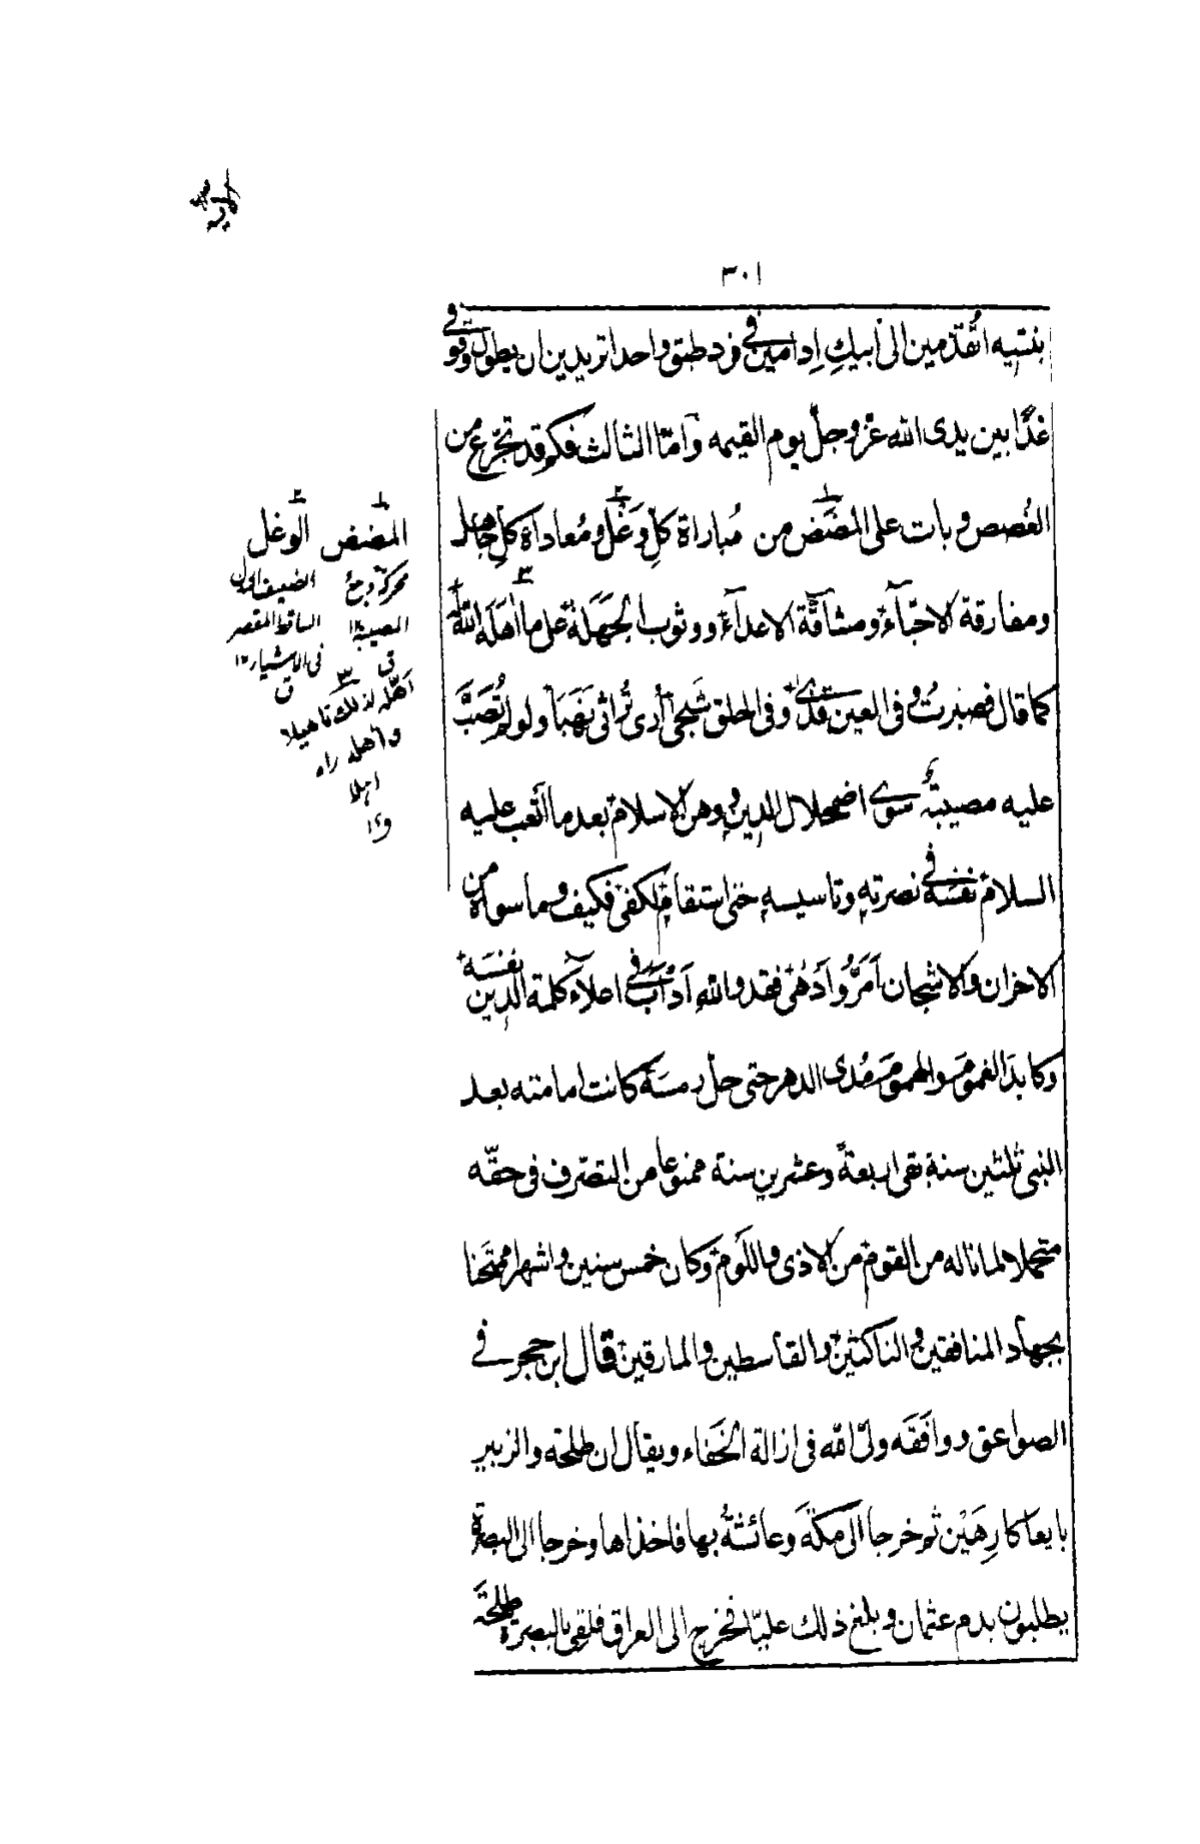 ٣٠١
بنتيه اتقدمين الى ابيك إدامين في فرد طبق واحد اتريدين ان يطول وقوفي
غدًا بين يدى الله عزّ وجلّ يوم القيمه وَامّا الثالث فكم قد تجرّع من
الغُصص وبات على المضَض من مُباراة كلِّ وَغْل ومُعاداة كلِّ جاهل
ومفارقة الاحبّآء ومشآقّة الاعدآء ووثوب الجَهَلة على ما اهَلَه اللهُ
كما قال فصبرتُ وفى العين قذىً وفى الحلق شجىً أرى تُراثى نَهَبًا ولو لم تُصَبَّ
عليه مصيبةٌ سوى اضمحلال الدين ووهن الاسلام بعد ما اتعب عليه
السلام نفسَه فى نصرته وتاسيسه حتى استقام لكفى فكيف وما سواه من
الاحزان والاشجان اَمَرُّ واَدْهى فقد والله اَدْأبَ فى اعلآء كلمة الدين نفسَه
وكابدَ الغمومَ والهمومَ مَدى الدهر حتى حلّ رمسَه كانت امامته بعد
النبى ثلثين سنة بقى اربعةً وعشرين سنة ممنوعا من التصرّف فى حقّه
متحملا لما ناله من القوم من الاذى واللَوم وكان خمس سنين واشهرا ممتَحنا
بجهاد المنافقين والناكثين والقاسطين والمارقين قال ابن حجر فى
الصواعق ووافَقَه ولىّ الله فى ازالة الخَفاء ويقال ان طلحة والزبير
بايعا كارِهَيْن ثم خرجا الى مكةَ وعائشةُ بها فاخذاها وخرجا الى البصرة
يطلبون بدم عثمان وبلغ ذلك عليّا فخرج الى العراق فلقى بالبصرة طلحةَ
١
المضض
محركة وجع
المصيبة ١٢
ق
٢
الوغل
الضعيف النذل
الساقط المقصر
فى الاشياء ١٢
ق
٣
اَهّله لذلك تاهيلا
واهله راه
اهلا
ق ١٢